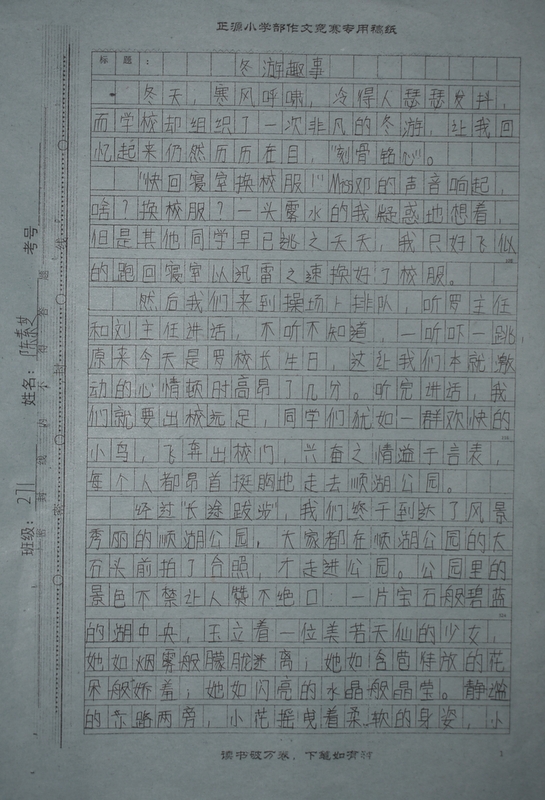 正源小学部作文竞赛专用稿纸
标题：冬游趣事
冬天，寒风呼啸，冷得人瑟瑟发抖，
而学校却组织了一次非凡的冬游，让我回
忆起来仍然历历在目，"刻骨铭心"。
"快回寝室换校服！"Miss邓的声音响起，
啥？换校服？一头雾水的我疑惑地想着，
但是其他同学早已逃之夭夭，我只好飞似
的跑回寝室以迅雷之速换好了校服。
然后我们来到操场上排队，听罗主任
和刘主任讲话，不听不知道，一听吓一跳
原来今天是罗校长生日，这让我们本就激
动的心情顿时高昂了几分。听完讲话，我
们就要出校远足，同学们犹如一群欢快的
小鸟，飞奔出校门，兴奋之情溢于言表，
每个人都昂首挺胸地走去顺湖公园。
经过"长途跋涉"，我们终于到达了风景
秀丽的顺湖公园，大家都在顺湖公园的大
石头前拍了合照，才走进公园。公园里的
景色不禁让人赞不绝口：一片宝石般碧蓝
的湖中央，玉立着一位美若天仙的少女，
她如烟雾般朦胧迷离；她如含苞待放的花
朵般娇羞；她如闪亮的水晶般晶莹。静谧
的东路两旁，小花摇曳着柔软的身姿，小
读书破万卷，下笔如有神
1
班级：271
姓名：陈
考号
密封线内不得答题